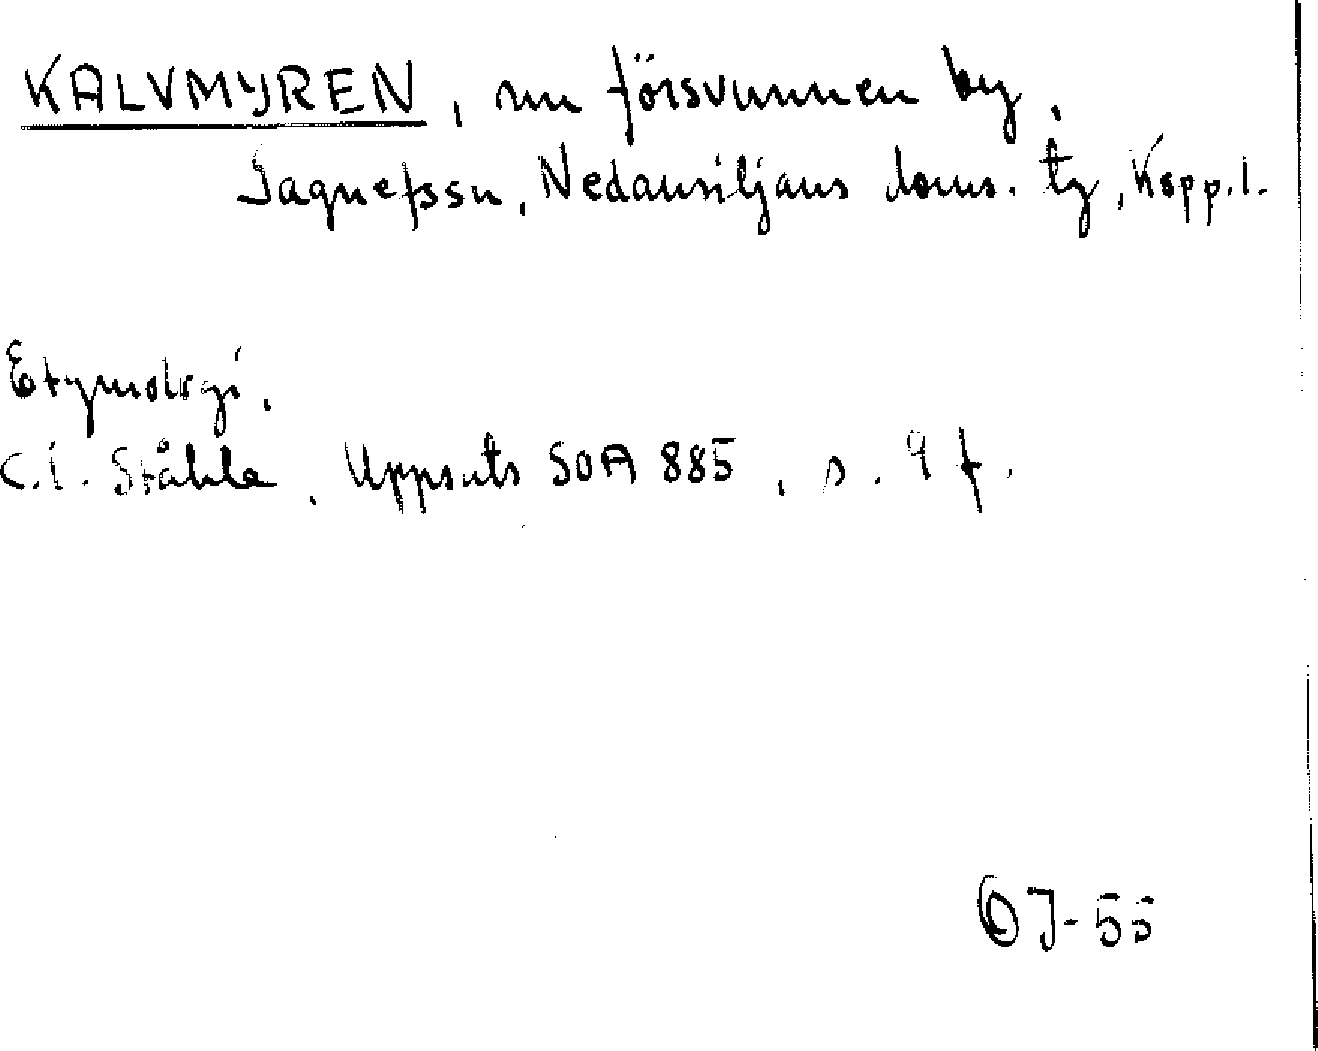 KALVMYREN, nu försvunnen by,
Jagnefssn, Nedansiljans doms. tg, Kopp. l.
Etymologi.
C.I. Ståhle, Uppsats SOA 885, s. 9 f.
OJ-55